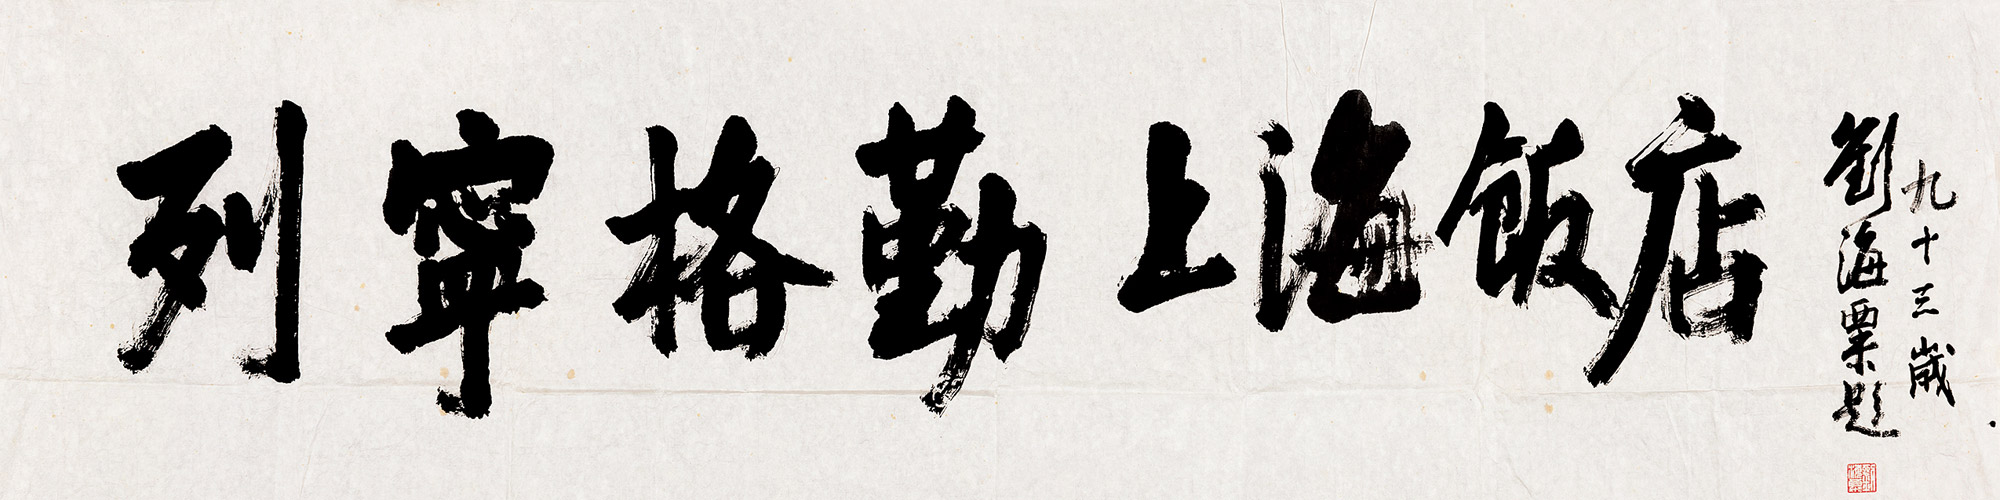 列寧格勤上海飯店
九十三歲
劉海粟題